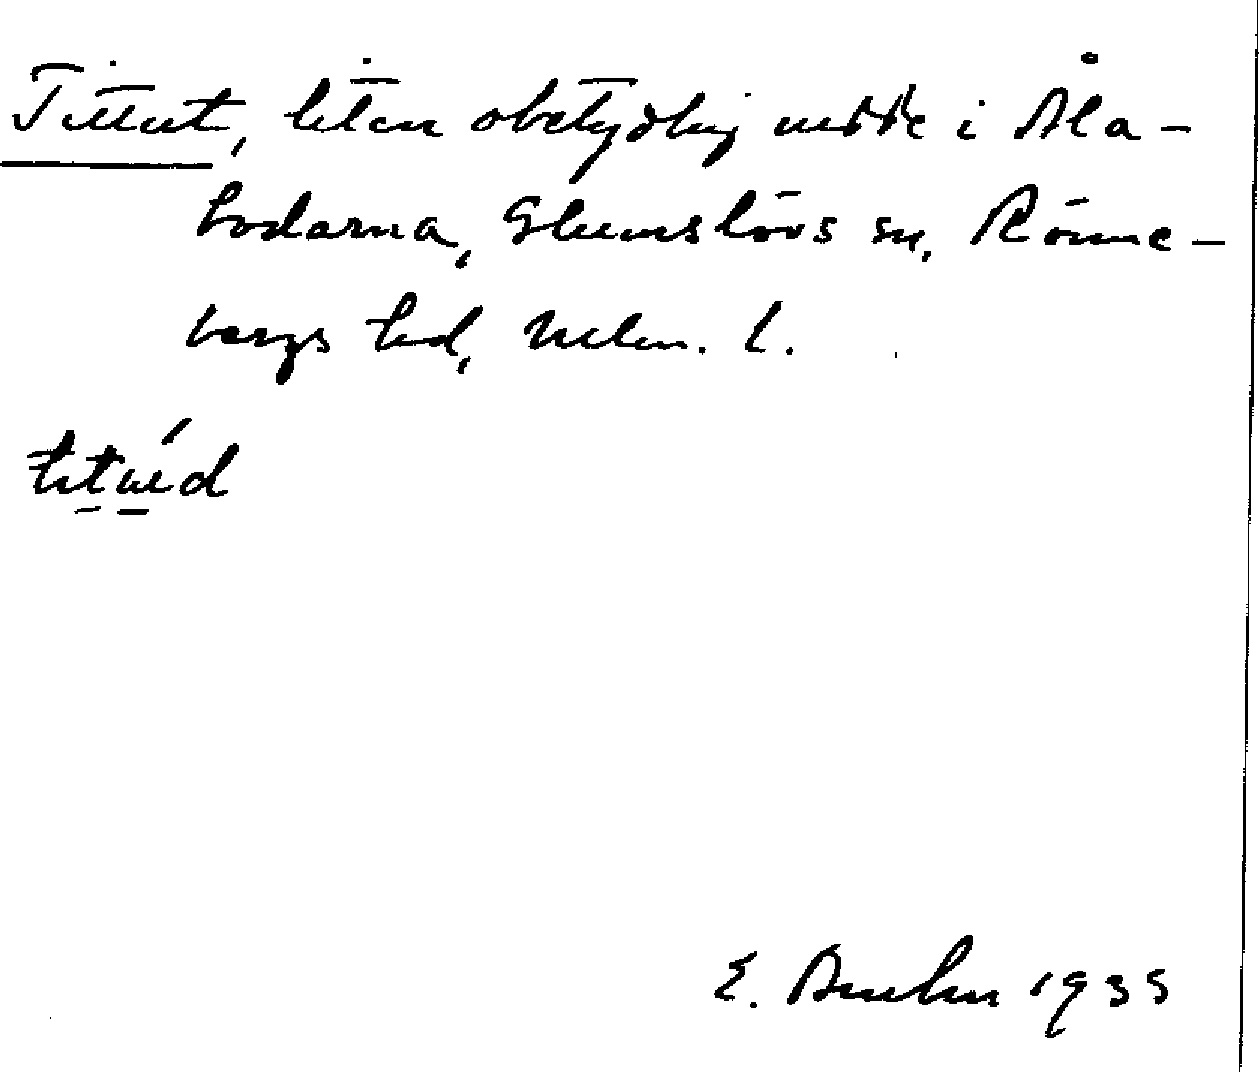 Tittut, liten obetydlig udde i Åla-
bodarna, Glumslövs sn, Rönne-
bergs hd, Malm. l.
titúd
E. 1935